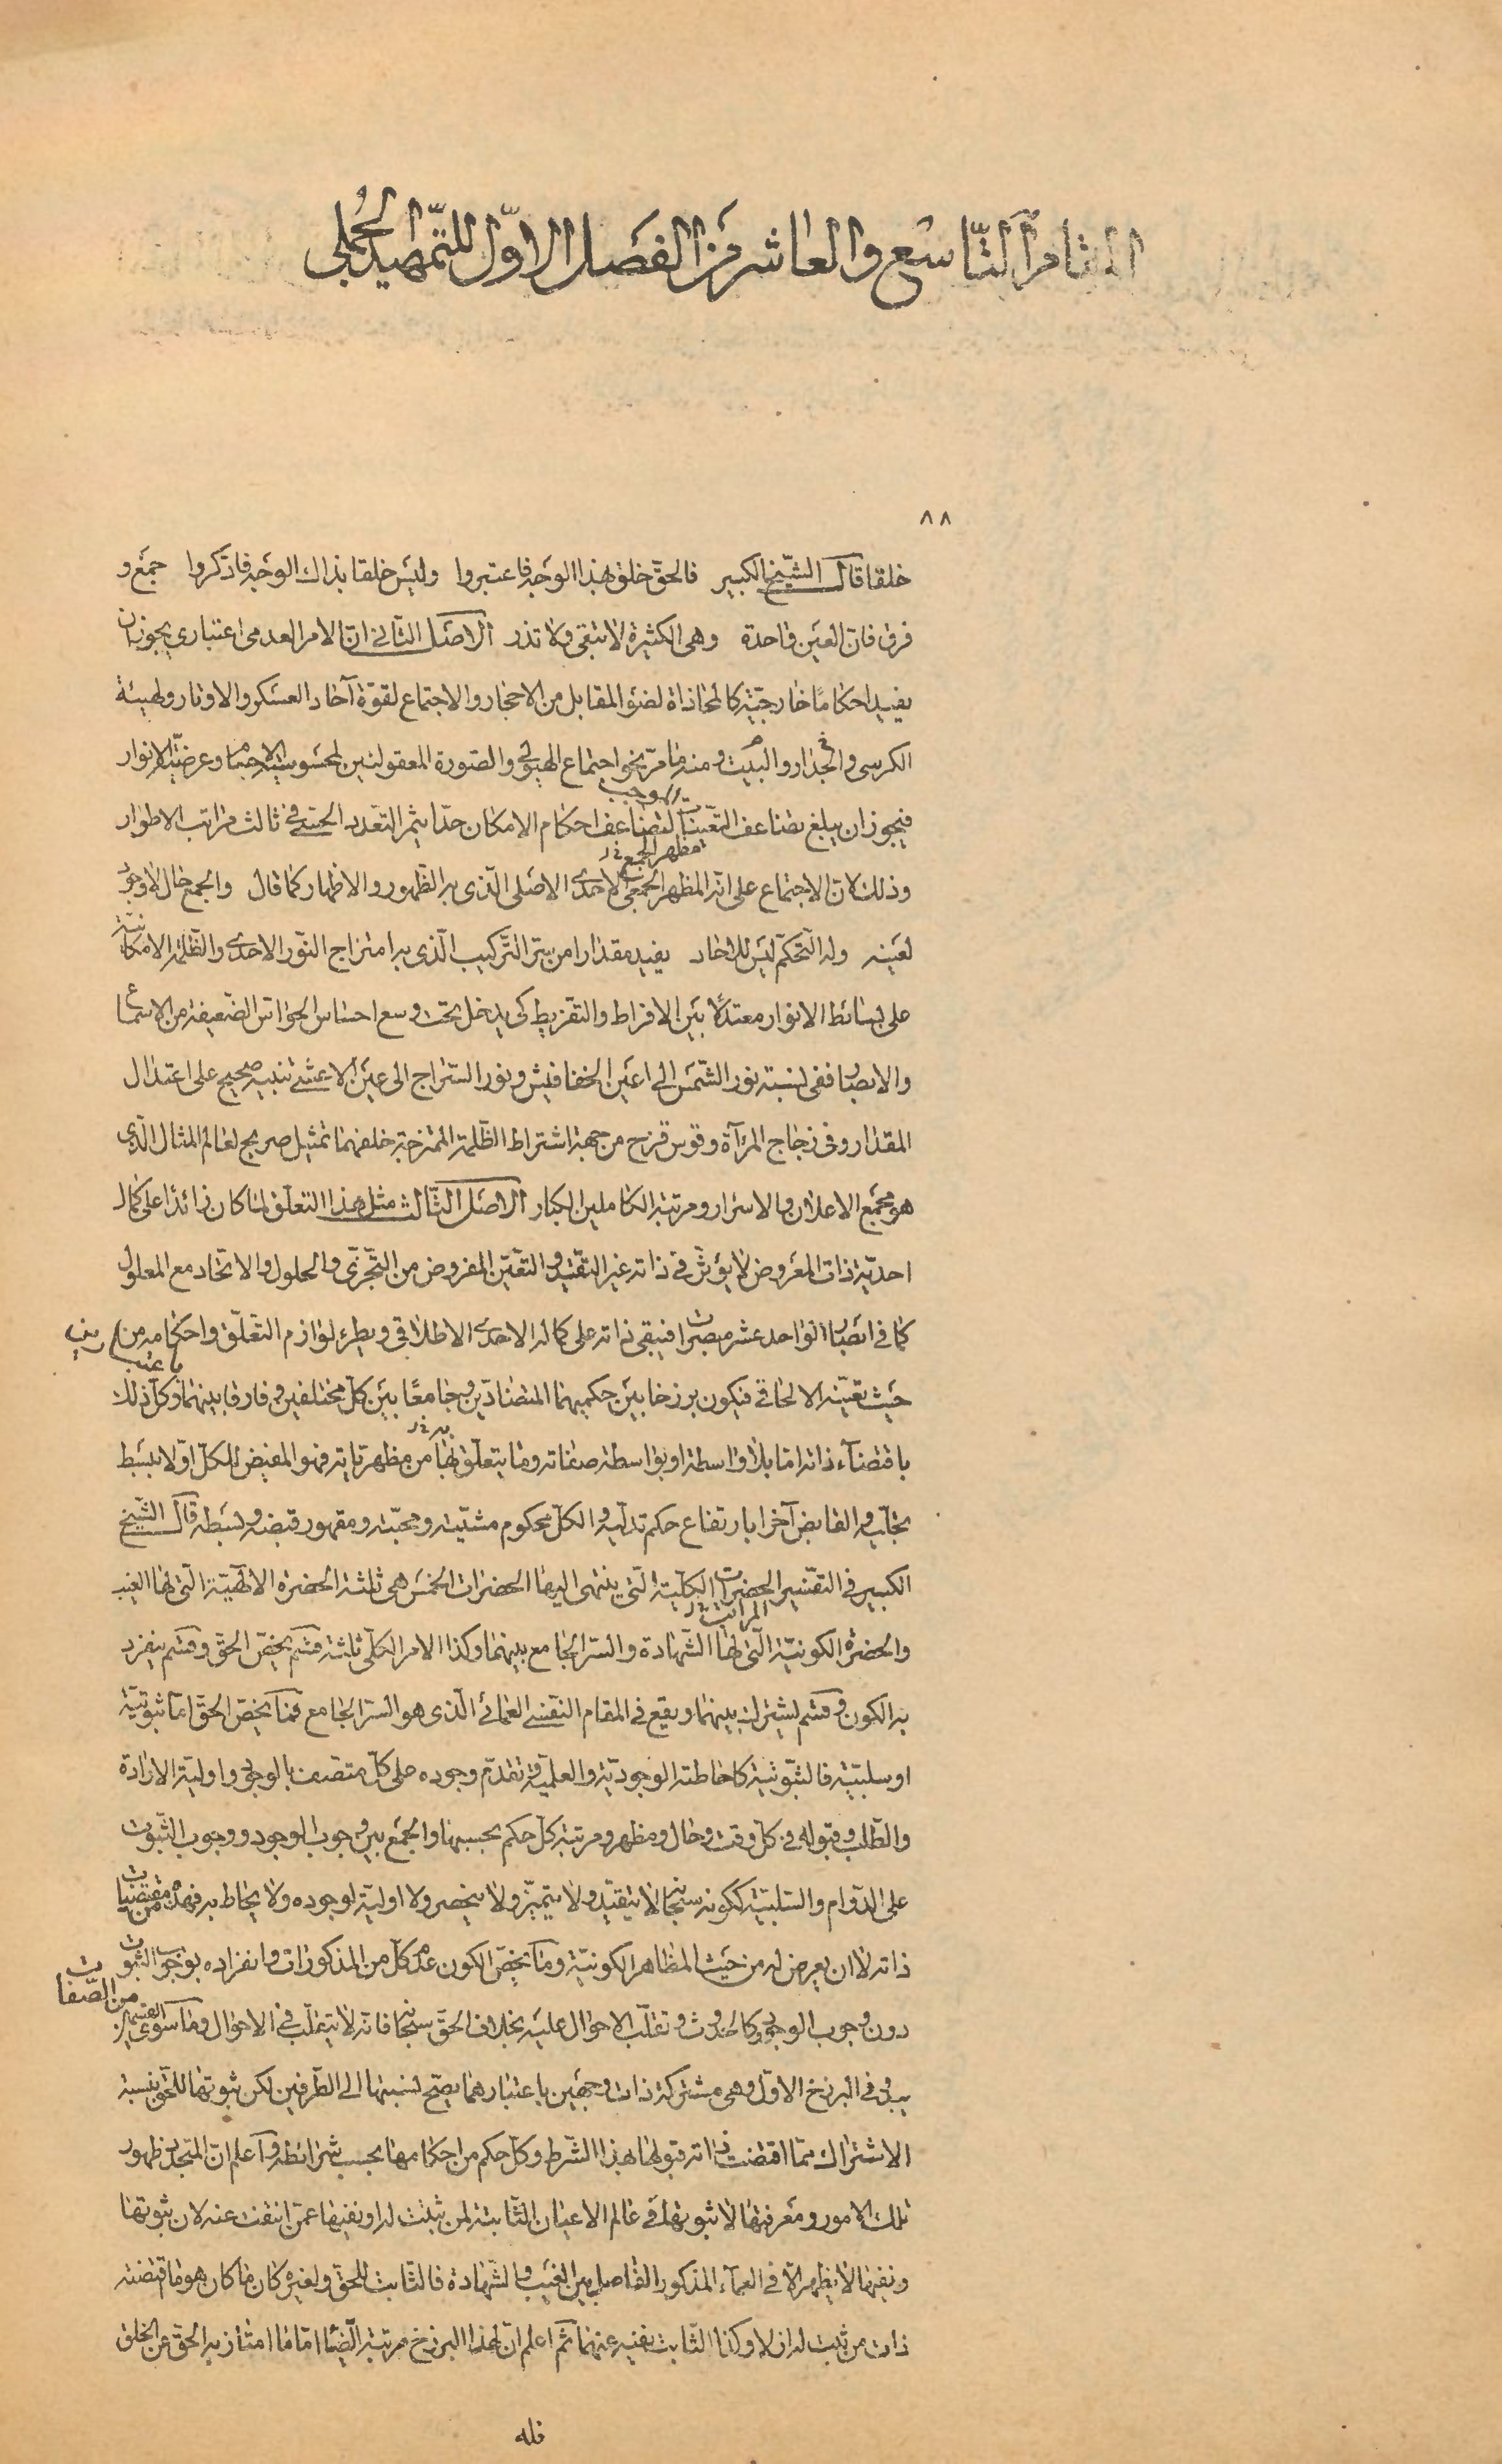 الثامن التاسع والعاشر من الفصل الاول للتمهيد الجملي
٨٨
خلقا قال الشيخ الكبير فالحق خلق بهذا الوجه فاعتبروا وليس خلقا بذاك الوجه فاذكروا جمع و
فرق فان العين واحدة وهى الكثيرة لا تبقى ولا تذر الاصل الثانى ان الامر العدمى اعتبارى يجوز ان
يفيد احكاما خارجية كالمحاذاة لضوء المقابل من الاحجار والاجتماع لقوة آحاد العسكر والاوتار ولهيئة
الكرسى والجدار والبيت ومنه ما مر نحو اجتماع الهيولى والصورة المعقولتين لمحسوسية الاجسام وعرضية الانوار
فيجوز ان يبلغ تضاعف التعينات لتضاعف احكام الامكان حدا يثمر التعدد الحسى فى ثالث مراتب الاطوار
الوجب
مظهر الجمع خ ل
وذلك لان الاجتماع على انه المظهر الجمعى الاحدى الاصلى الذى به الظهور والاظهار كما قال والجمع حال لا وجود
لعينه وله التحكم ليس للآحاد يفيد مقدارا من سر التركيب الذى به امتزاج النور الاحدى والظلمة الامكانية
على بسائط الانوار معتدلا بين الافراط والتفريط كى يدخل تحت وسع احساس الحواس الضعيفة من الاسماع
والابصار ففى نسبة نور الشمس الى اعين الخفافيش ونور السراج الى عين الاعشى تنبيه صحيح على اعتدال
المقدار وفى زجاج المرآة وقوس قزح من جهة اشتراط الظلمة الممتزجة خلفهما تمثيل صريح لعالم المثال الذى
هو مجمع الاعلان والاسرار ومرتبة الكاملين الكبار الاصل الثالث مثل هذا التعلق لما كان زائدا على كمال
احدية ذات المعروض لا يؤثر فى ذاته غير التقيد والتعين المفروض من التجزى والحلول والاتحاد مع المعلول
كما فى ابصار الواحد عشر مبصرات فيبقى ذاته على كماله الاحدى الاطلاقى ويطرء لوازم التعلق واحكامه من
حيث تعينه الالحاقى فيكون برزخا بين حكميهما المتضادين وجامعا بين كل مختلفين وفارقا بينهما وكل ذلك
باقتضاء ذاته اما بلا واسطة او بواسطة صفاته وما يتعلق بها من مظهرياته فهو المفيض للكل اولا ببسط
به خ ل
تجليه والقابض آخرا بارتفاع حكم تدليه والكل محكوم مشيته ومحبته ومقهور قبضه وبسطه قال الشيخ
الكبير فى التفسير الحضرات الكلية التى ينتهى اليها الحضرات الخمس هى ثلثة الحضرة الالهية التى لها الغيب
المراتب خ ل
والحضرة الكونية التى لها الشهادة والسر الجامع بينهما وكذا الامر الكلى ثلثة قسم يخص الحق وقسم ينفرد
به الكون وقسم يشترك بينهما ويقع فى المقام النفسى العمائى الذى هو السر الجامع فما يخص الحق اما ثبوتية
او سلبية فالثبوتية كاحاطته الوجودية والعلمية وتقدم وجوده على كل متصف بالوجود واولية الارادة
والطلب وقبوله فى كل وقت وحال ومظهر ومرتبة كل حكم بحسبها والجمع بين وجوب الوجود ووجوب الثبوت
على الدوام والسلبية ككونه سبحانه لا يتقيد ولا يتميز ولا ينحصر ولا اولية لوجوده ولا يحاط به فهذه من مقتضيات
ذاته لا ان يعرض له من حيث المظاهر الكونية وما يخص الكون عدم كل من المذكورات وانفراده بوجوب الثبوت
دون وجوب الوجود وكالحدوث وتقلب الاحوال عليه بخلاف الحق سبحانه فانه لا يتقلب فى الاحوال وما سوى القسمين
من الصفات
يبدو فى البرزخ الاول وهى مشتركة ذات وجهين باعتبارهما يصح نسبتها الى الطرفين لكن ثبوتها للحق بنسبة
الاشتراك مما اقتضت ذاته قبولها بهذا الشرط وكل حكم من احكامها بحسب شرائطه واعلم ان المتجدد ظهور
تلك الامور ومعرفتها لا ثبوتها فى عالم الاعيان الثابتة لمن ثبتت له او نفيها عمن انتفت عنه لان ثبوتها
ونفيها لا يظهر الا فى العماء المذكور الفاصل بين الغيب والشهادة فالثابت للحق ولغيره كان ما كان هو ما اقتضته
ذات من ثبت له ازلا وكذا الثابت نفيه عنهما ثم اعلم ان لهذا البرزخ مرتبة ايضا اما ما امتاز به الحق عن الخلق
فله